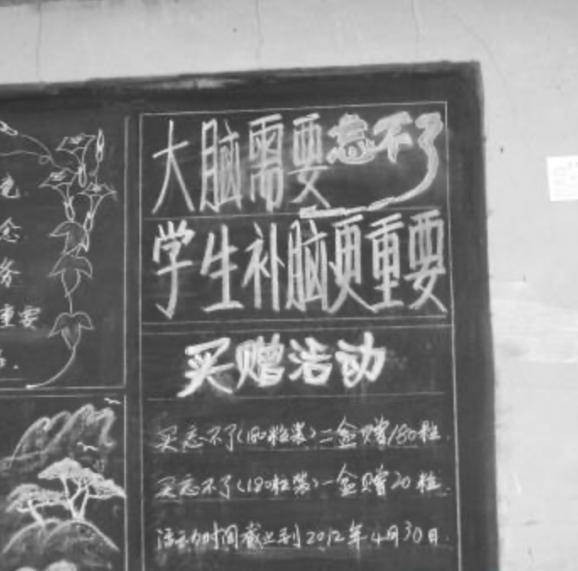 大脑需要忘不了
学生补脑更重要
买赠活动
买忘不了(180粒装)二盒赠180粒.
买忘不了(180粒装)一盒赠20粒.
活动时间截止到2012年4月30日.
念
务
重要